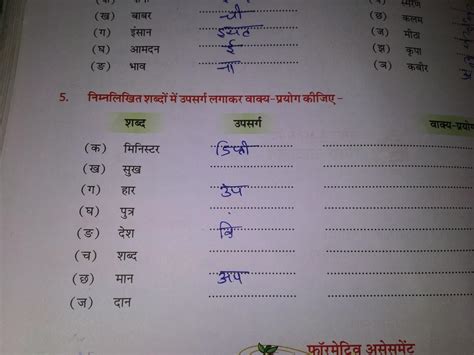 (ख) बाबर ची (छ) कलम
(ग) इंसान इयत (ज) मीठा
(घ) आमदन ई (झ) कृपा
(ङ) भाव ना (ञ) कबीर
5. निम्नलिखित शब्दों में उपसर्ग लगाकर वाक्य-प्रयोग कीजिए -
शब्द उपसर्ग वाक्य-प्रयोग
(क) मिनिस्टर डिप्टी
(ख) सुख
(ग) हार उप
(घ) पुत्र
(ङ) देश वि
(च) शब्द
(छ) मान अप
(ज) दान
फॉरमेटिव असेसमेंट